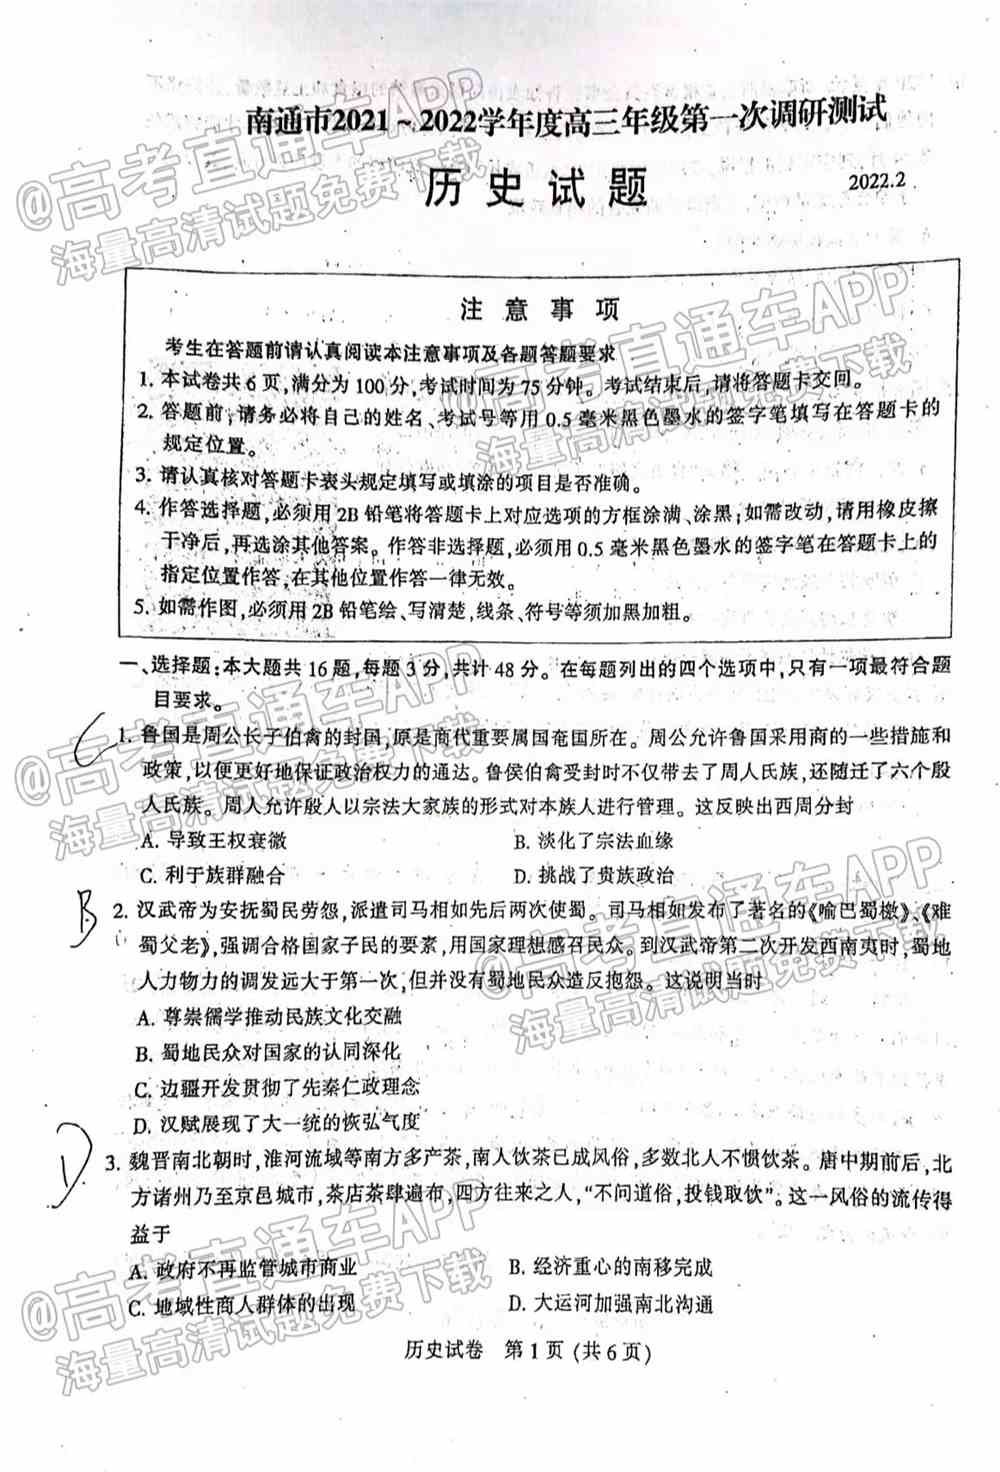 南通市2021～2022学年度高三年级第一次调研测试
历史试题
2022.2
注意事项
考生在答题前请认真阅读本注意事项及各题答题要求
1. 本试卷共6页,满分为100分,考试时间为75分钟。考试结束后,请将答题卡交回。
2. 答题前,请务必将自己的姓名、考试号等用0.5毫米黑色墨水的签字笔填写在答题卡的
规定位置。
3. 请认真核对答题卡表头规定填写或填涂的项目是否准确。
4. 作答选择题,必须用2B铅笔将答题卡上对应选项的方框涂满、涂黑;如需改动,请用橡皮擦
干净后,再选涂其他答案。作答非选择题,必须用0.5毫米黑色墨水的签字笔在答题卡上的
指定位置作答,在其他位置作答一律无效。
5. 如需作图,必须用2B铅笔绘、写清楚,线条、符号等须加黑加粗。
一、选择题:本大题共16题,每题3分,共计48分。在每题列出的四个选项中,只有一项最符合题
目要求。
C
1. 鲁国是周公长子伯禽的封国,原是商代重要属国奄国所在。周公允许鲁国采用商的一些措施和
政策,以便更好地保证政治权力的通达。鲁侯伯禽受封时不仅带去了周人民族,还随迁了六个殷
人民族。周人允许殷人以宗法大家族的形式对本族人进行管理。这反映出西周分封
A. 导致王权衰微
B. 淡化了宗法血缘
C. 利于族群融合
D. 挑战了贵族政治
B
2. 汉武帝为安抚蜀民劳怨,派遣司马相如先后两次使蜀。司马相如发布了著名的《喻巴蜀檄》、《难
蜀父老》,强调合格国家子民的要素,用国家理想感召民众。到汉武帝第二次开发西南夷时,蜀地
人力物力的调发远大于第一次,但并没有蜀地民众造反抱怨。这说明当时
A. 尊崇儒学推动民族文化交融
B. 蜀地民众对国家的认同深化
C. 边疆开发贯彻了先秦仁政理念
D. 汉赋展现了大一统的恢弘气度
D
3. 魏晋南北朝时,淮河流域等南方多产茶,南人饮茶已成风俗,多数北人不惯饮茶。唐中期前后,北
方诸州乃至京邑城市,茶店茶肆遍布,四方往来之人,“不问道俗,投钱取饮”。这一风俗的流传得
益于
A. 政府不再监管城市商业
B. 经济重心的南移完成
C. 地域性商人群体的出现
D. 大运河加强南北沟通
历史试卷 第1页(共6页)
@高考直通车APP
海量高清试题免费下载
@高考直通车APP
海量高清试题免费下载
@高考直通车APP
海量高清试题免费下载
@高考直通车APP
海量高清试题免费下载
@高考直通车APP
海量高清试题免费下载